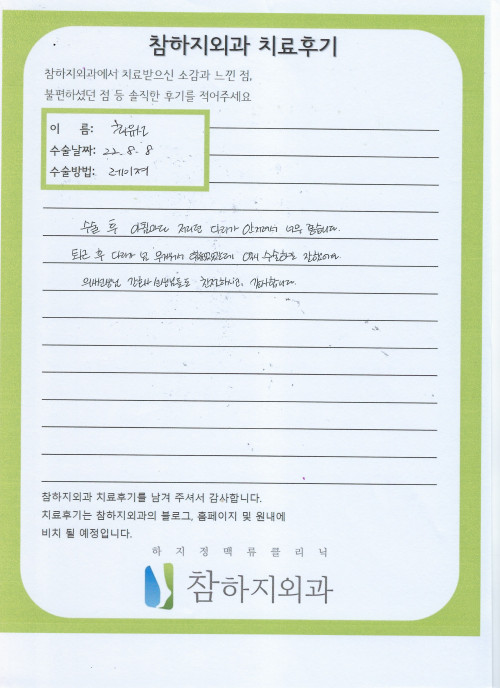 참하지외과 치료후기
참하지외과에서 치료받으신 소감과 느낀 점,
불편하셨던 점 등 솔직한 후기를 적어주세요
이 름:
수술날짜: 22.8.8
수술방법: 레이져
수술 후 아침마다 저리던 다리가 안저려서 너무 좋습니다.
퇴근 후 다리가 넘 무거워서 수술하고
의사선생님 간호사 선생님들도 친절하시고, 감사합니다.
참하지외과 치료후기를 남겨 주셔서 감사합니다.
치료후기는 참하지외과의 블로그, 홈페이지 및 원내에
비치 될 예정입니다.
하지정맥류클리닉
참하지외과